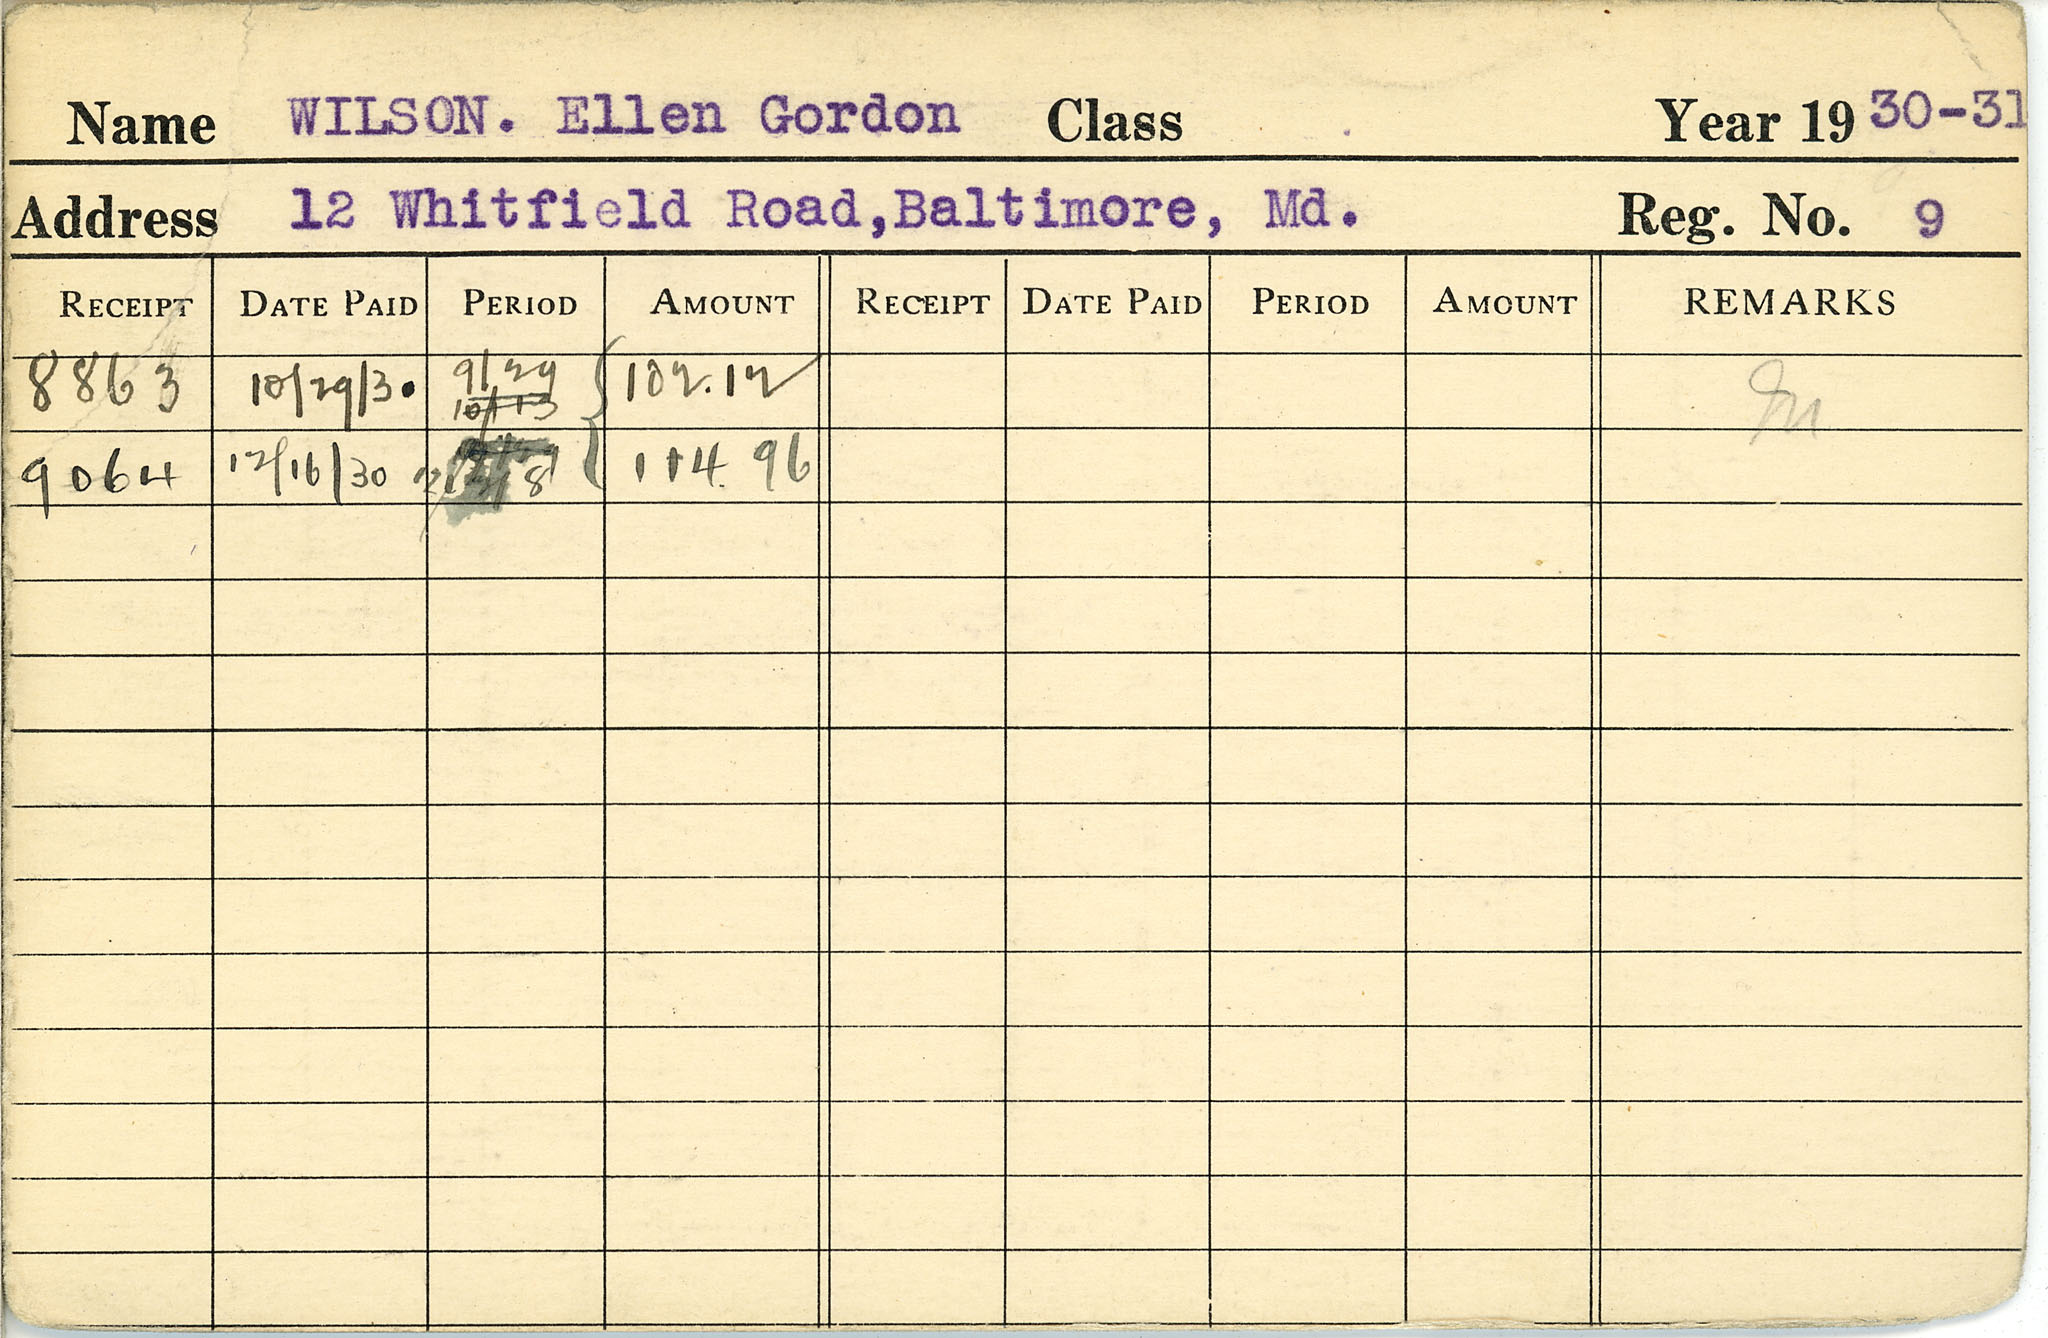 Name WILSON. Ellen Gordon Class Year 19 30-31
Address 12 Whitfield Road,Baltimore, Md. Reg. No. 9
RECEIPT DATE PAID PERIOD AMOUNT RECEIPT DATE PAID PERIOD AMOUNT REMARKS
8863 10/29/30 9/29 102.12
10/13
9064 12/16/30 114.96